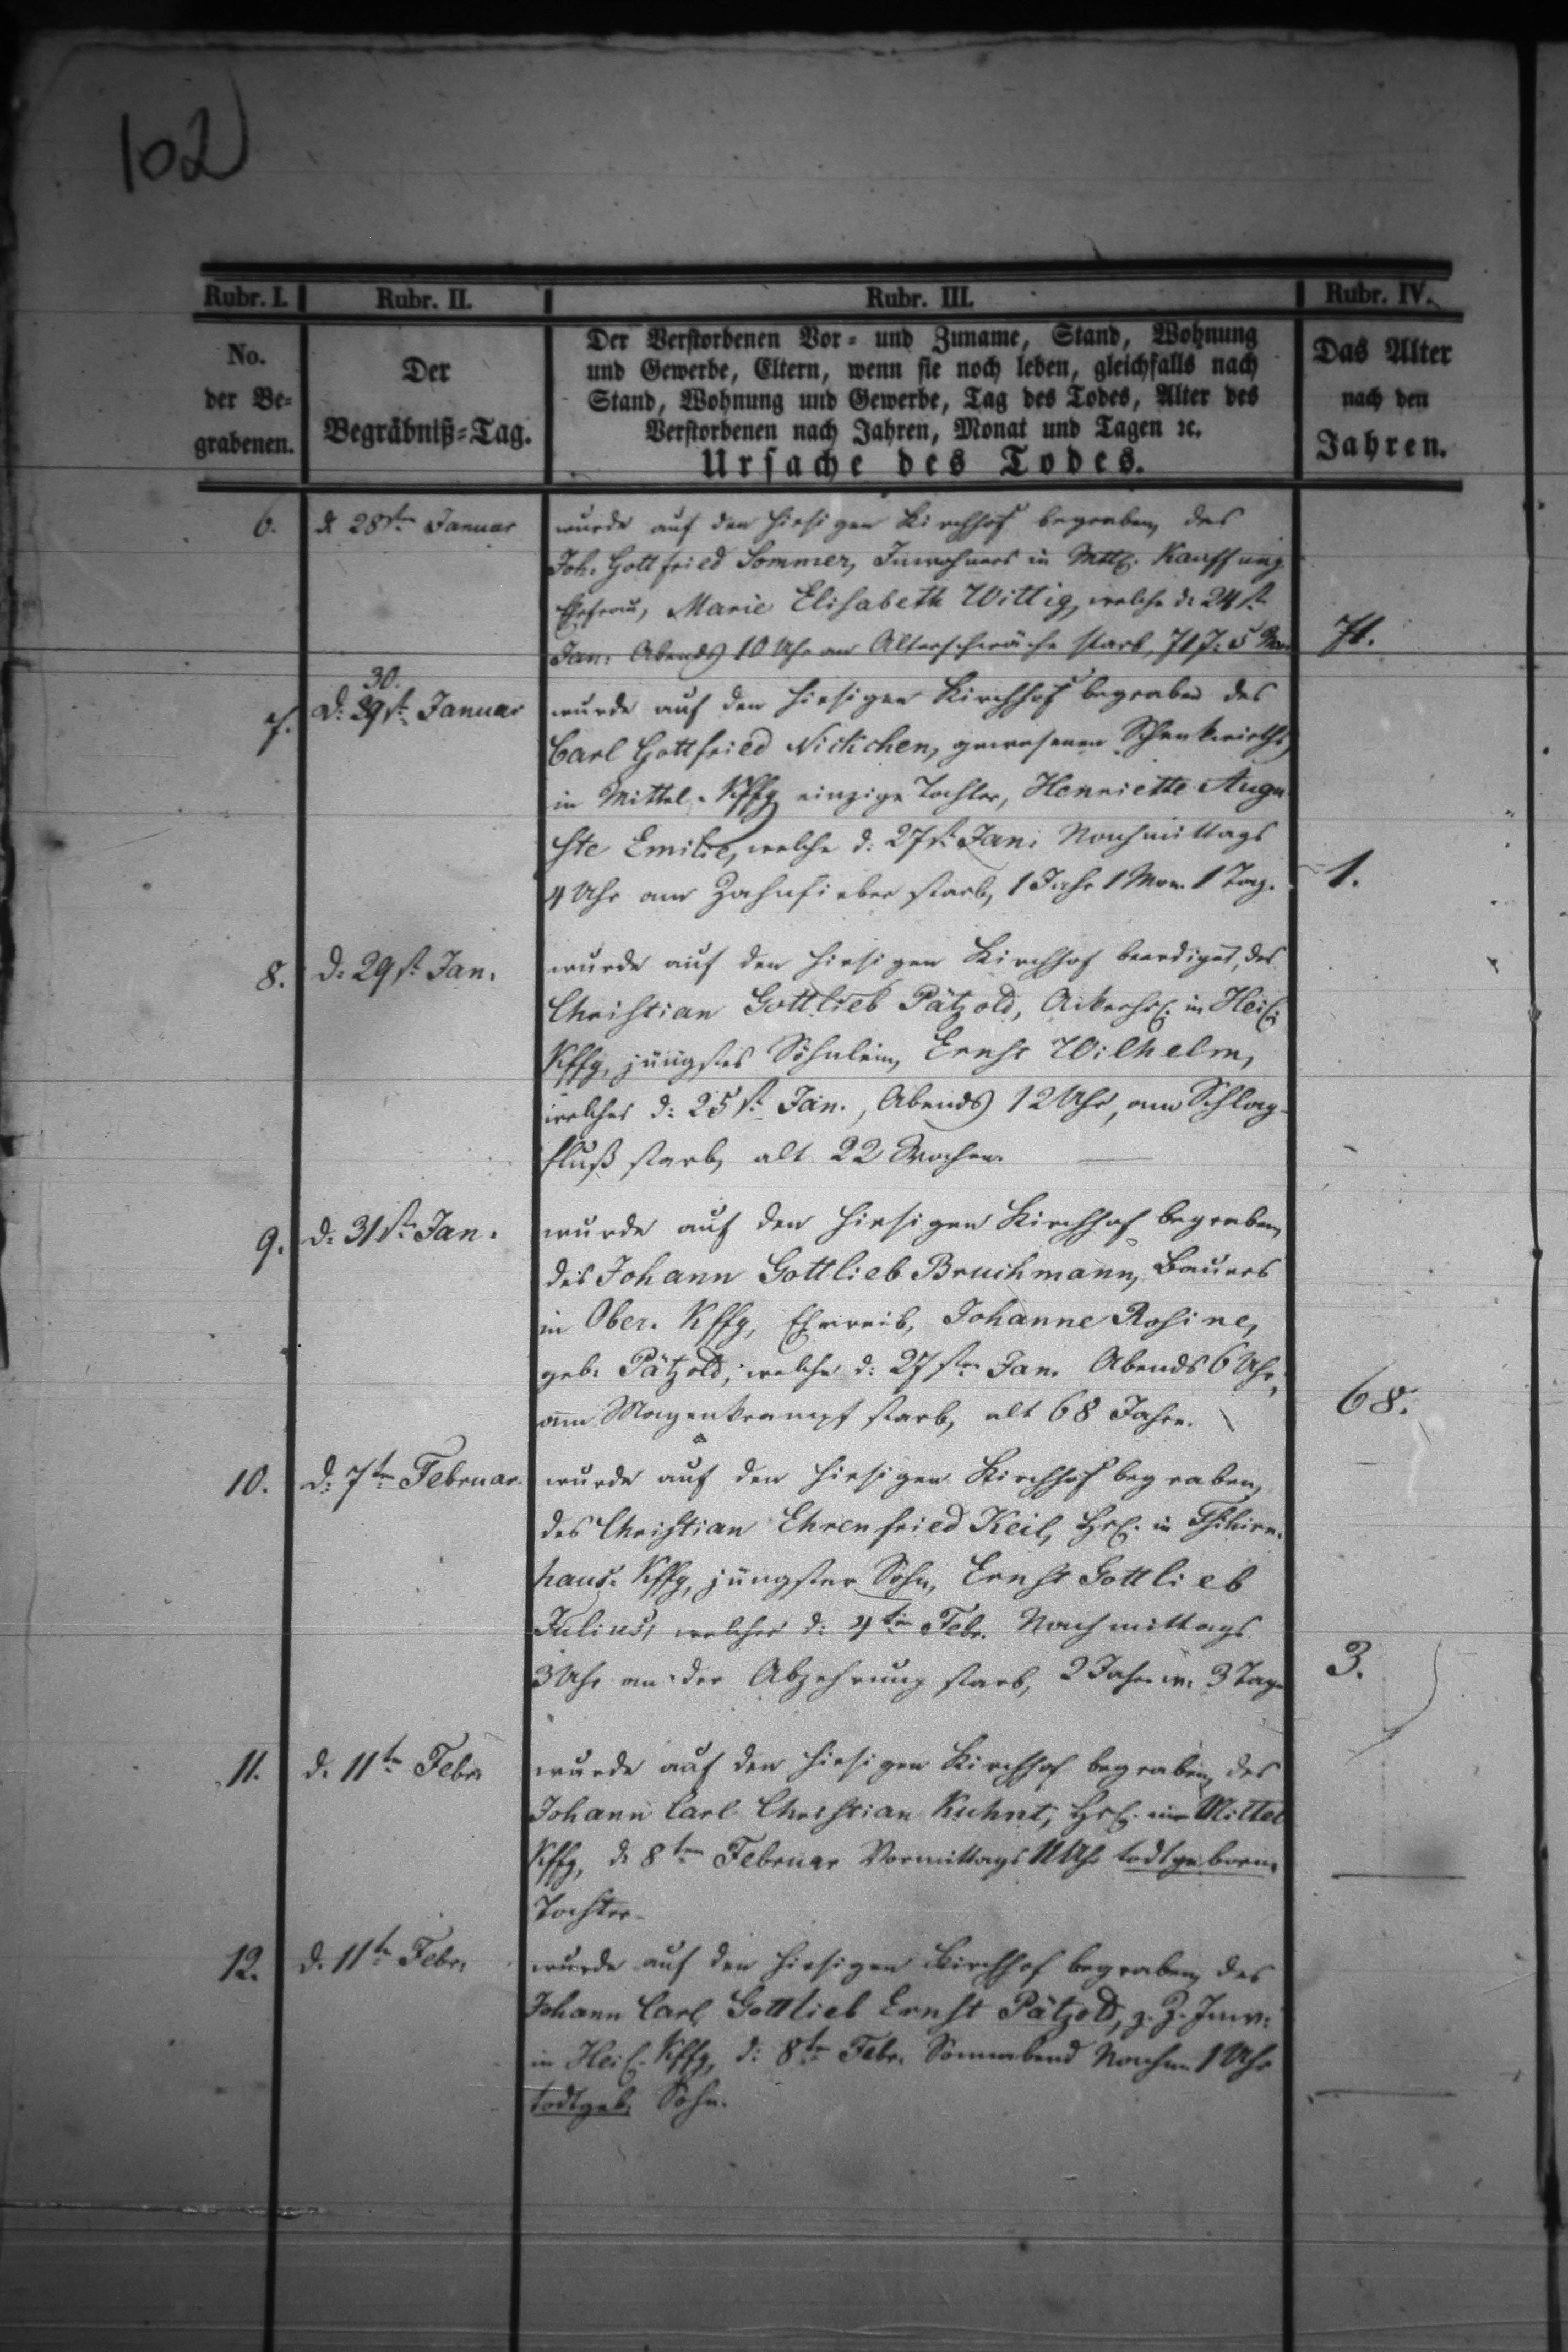 102
Rubr. I. Rubr. II. Rubr. III. Rubr. IV.
No. der Be-grabenen. Der Begräbniß-Tag. Der Verstorbenen Vor- und Zuname, Stand, Wohnung
und Gewerbe, Eltern, wenn sie noch leben, gleichfalls nach
Stand, Wohnung und Gewerbe, Tag des Todes, Alter des
Verstorbenen nach Jahren, Monat und Tagen ꝛc.
Ursache des Todes.
Das Alter nach den Jahren.
6. d. 28st. Januar wurde auf den hiesigen Kirchhof begraben, des
Joh. Gottfried Sommer, Inwohners in Mttl. Kauffung
Ehefrau, Marie Elisabeth Wittig, welche d: 24st.
Jan: Abends 10 Uhr an Altersschwäche starb, 71 J: 5 Mon 71.
30.
7. d: 29st. Januar wurde auf den hiesigen Kirchhof begraben des
Carl Gottfried Nickchen, gewesenen Schenkwirths
in Mittel-Kffg einzige Tochter, Henriette Augu-
ste Emilie, welche d: 27st. Jan: Nachmittags
4 Uhr am Zahnfieber starb, 1 Jahr 1 Mon. 1 Tag. 1.
8. d: 29st. Jan. wurde auf den hiesigen Kirchhof beerdiget, des
Christian Gottlieb Pätzold, Ackerhsl. in Heil.
Kffg, jüngstes Söhnlein, Ernst Wilhelm,
welches d: 25st. Jan., Abends 12 Uhr, am Schlag-
fluß starb, alt 22 Wochen.
9. d: 31st. Jan. wurde auf den hiesigen Kirchhof begraben,
des Johann Gottlieb Bruchmann, Bauers
in Ober. Kffg, Eheweib, Johanne Rosine,
geb. Pätzold, welche d: 27st. Jan. Abends 6 Uhr,
am Magenkrampf starb, alt 68 Jahre. 68.
10. d: 7ten Februar. wurde auf den hiesigen Kirchhof begraben,
des Christian Ehrenfried Keil, Hsl. in Tschirn-
haus. Kffg, jüngster Sohn, Ernst Gottlieb
Julius, welcher d: 4ten Febr. Nachmittags
3 Uhr an der Abzehrung starb, 2 Jahr w. 3 Tage 3.
11. d. 11ten Febr. wurde auf den hiesigen Kirchhof begraben, des
Johann Carl Christian Kuhnt, Hsl. in Mittel
Kffg, d. 8ten Februar Vormittags 11 Uhr todtgeborne
Tochter.
12. d. 11ten Febr. wurde auf den hiesigen Kirchhof begraben, des
Johann Carl Gottlieb Ernst Pätzold, z. Z. Inw:
in Heil. Kffg, d: 8ten Febr. Sonnabend Nachm. 1 Uhr
todtgeb. Sohn.